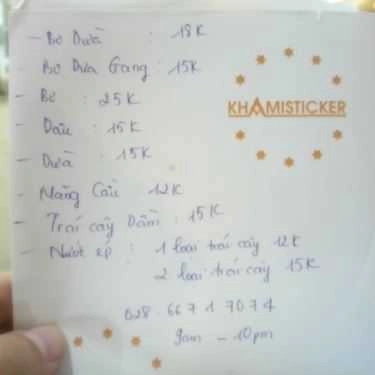 - Bơ Dừa : 18K
- Bơ Dưa Gang : 15K
- Bơ : 25K
- Dâu : 15K
- Dừa : 15K
- Mãng Cầu 12K
- Trái cây Dầm : 15K
- Nước ép : 1 loại trái cây 12K
2 loại trái cây 15K
028.667 1 7074
9am - 10pm
KHAMISTICKER